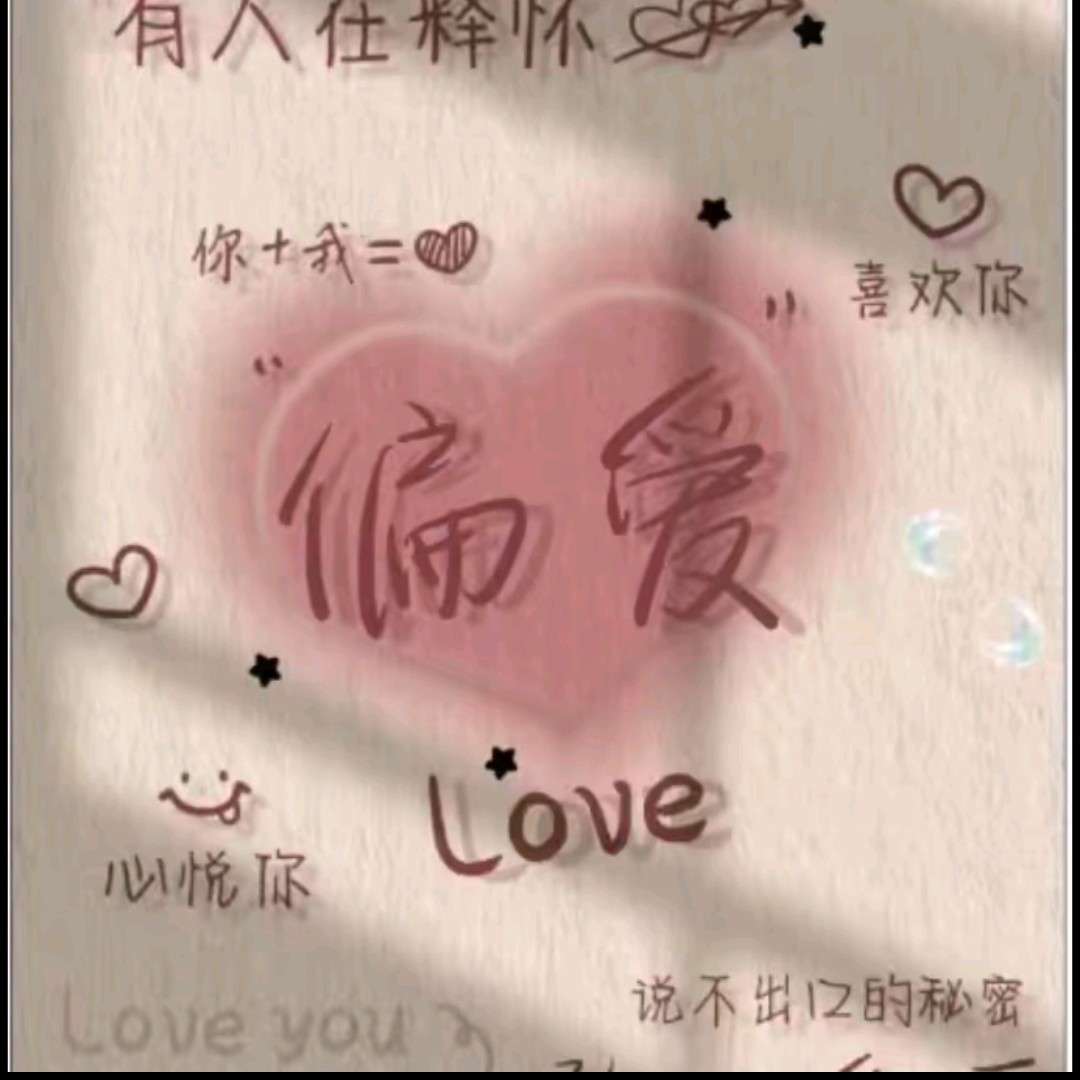 有人在释怀
你+我=
喜欢你
"偏爱"
Love
心悦你
说不出口的秘密
Love you